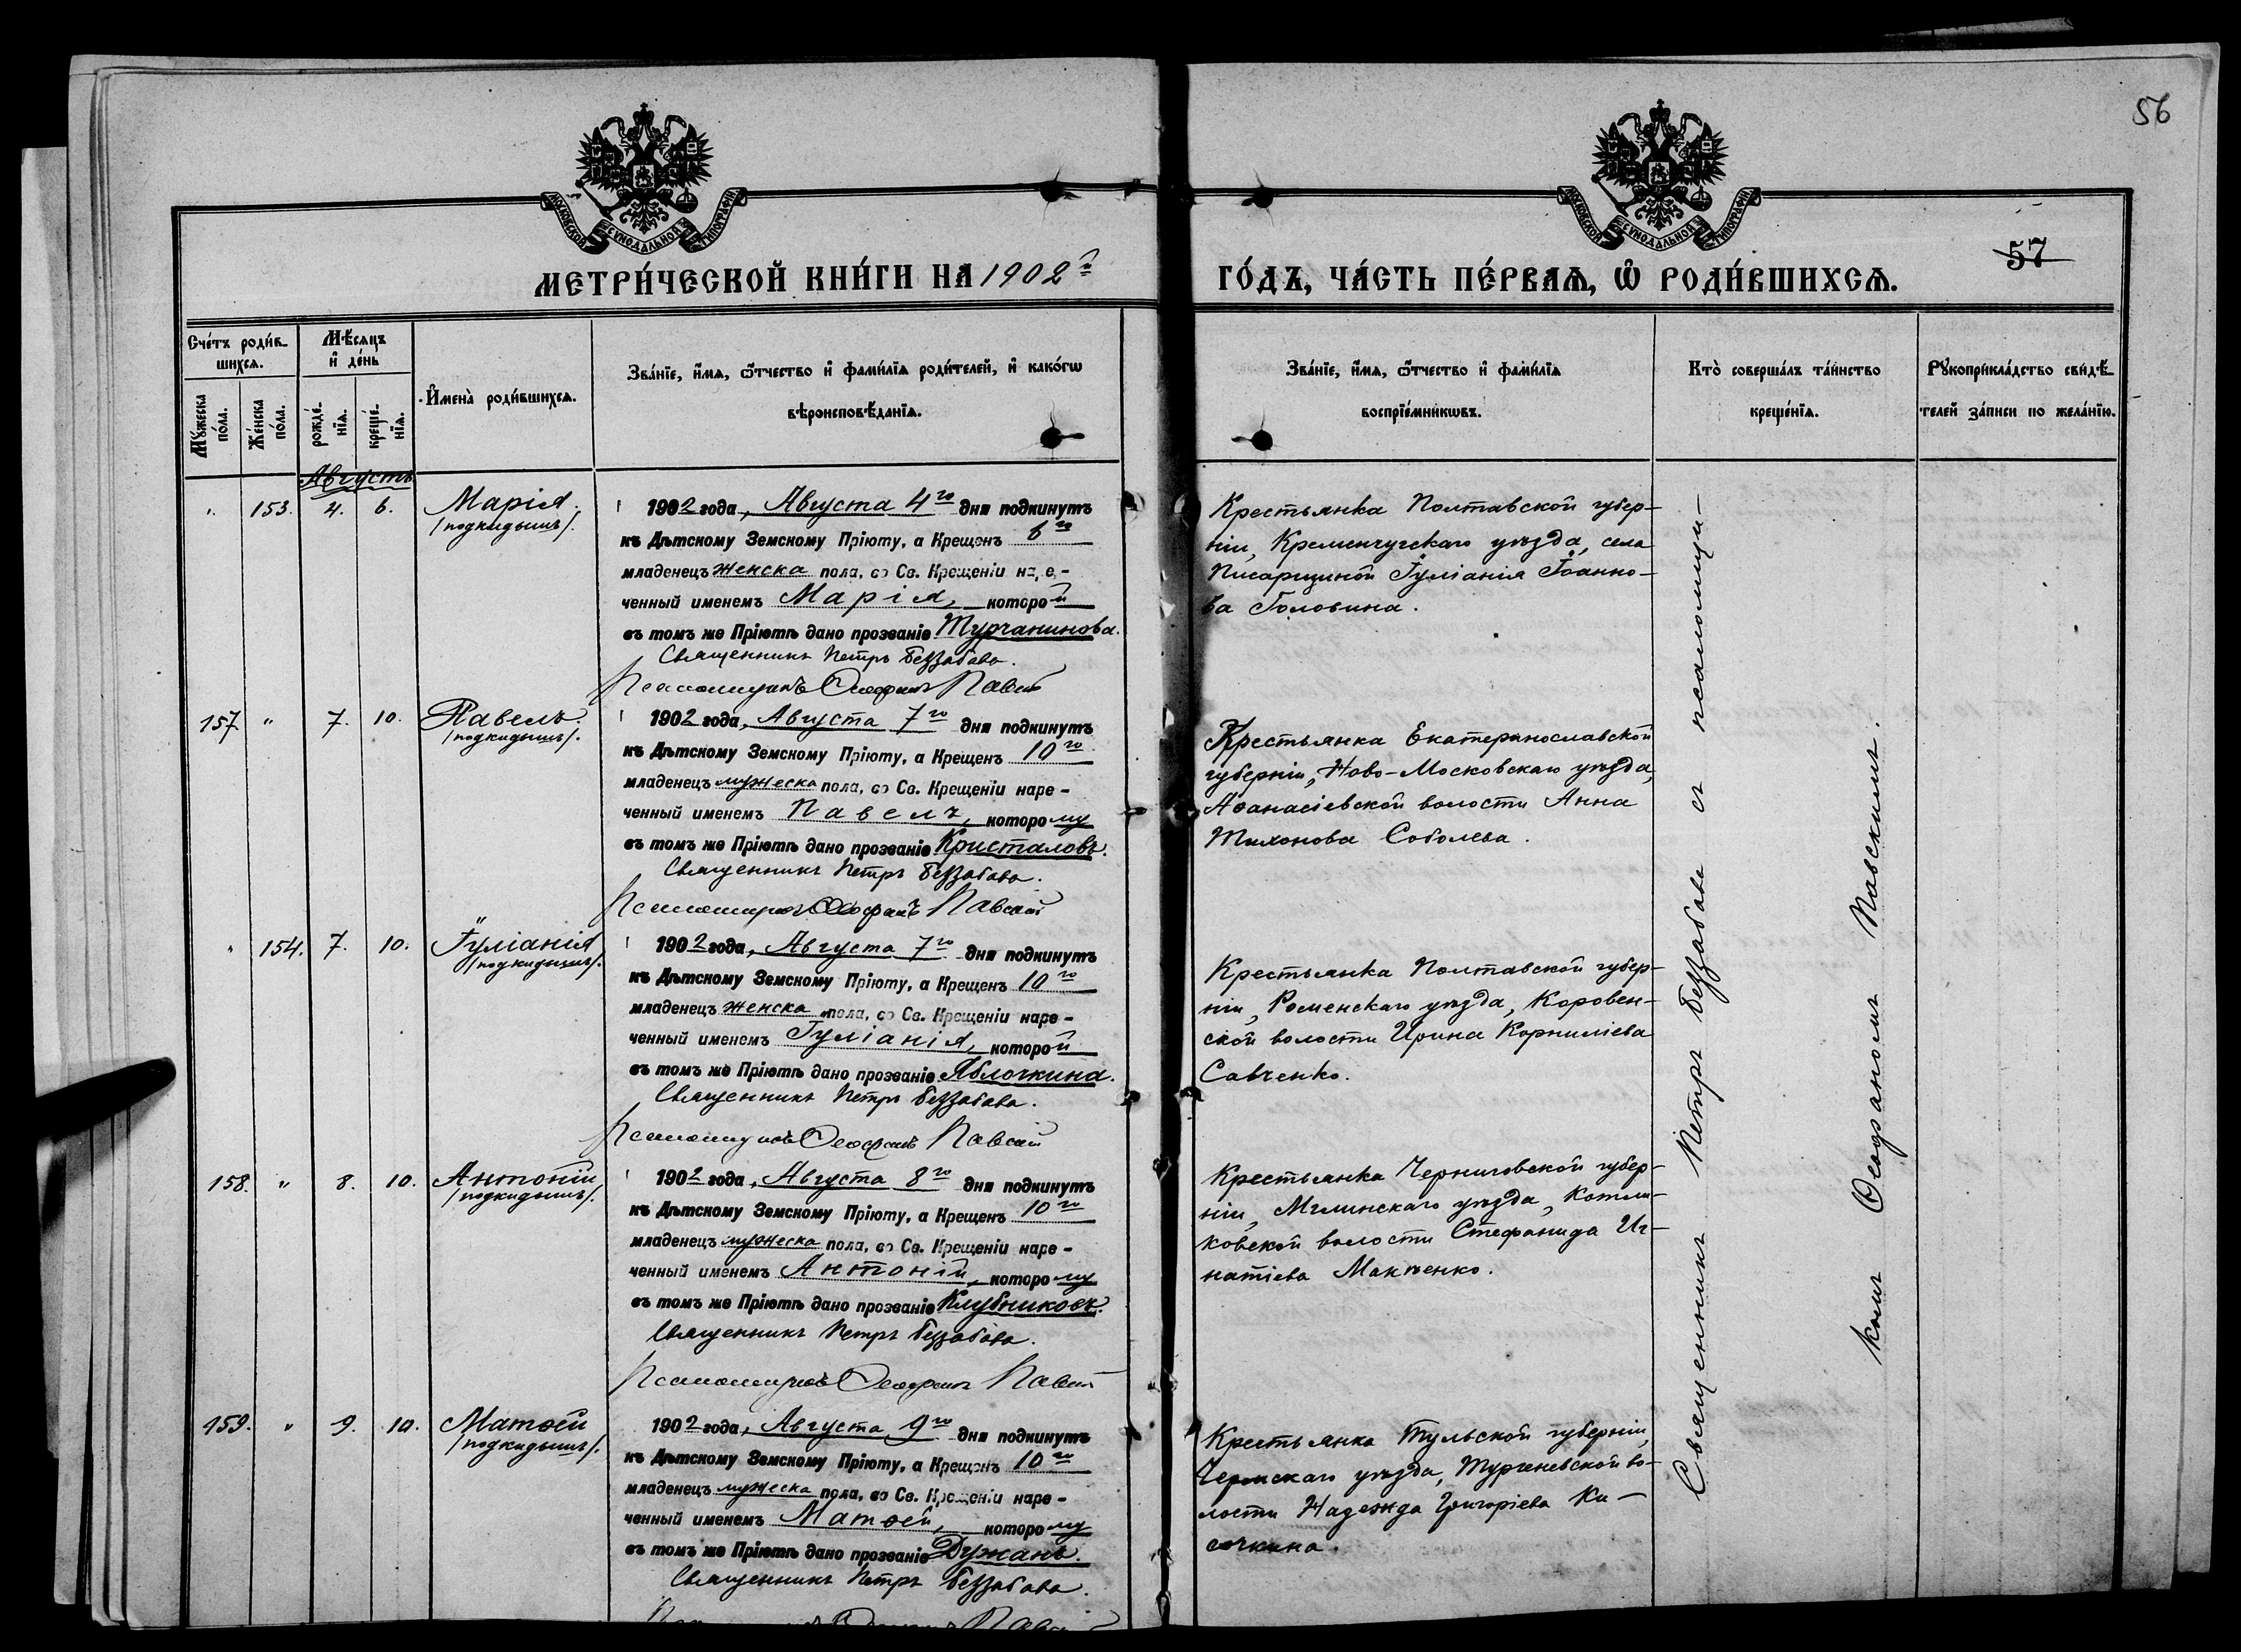 56
МОСКОВСКОЙ СѴНОДАЛЬНОЙ ТИПОГРАФІИ
МОСКОВСКОЙ СѴНОДАЛЬНОЙ ТИПОГРАФІИ
57
МЕТРИ́ЧЕСКОЙ КНИ́ГИ НА 1902й
ГО́ДЪ, ЧА́СТЬ ПЕ́РВАѦ, Ѽ РОДИ́ВШИХСѦ.
Сче́тъ роди́в-
шихсѧ.
Мꙋ́жеска по́ла.
Же́нска по́ла.
Мѣ́сѧцъ
и҆ де́нь
рожде́-
нїѧ.
креще́-
нїѧ.
И҆мена̀ роди́вшихсѧ.
Зва́нїе, и҆́мѧ, ѻ҆́тчество и҆ фами́лїѧ роди́телей, и҆ како́гѡ
вѣроисповѣ́данїѧ.
Зва́нїе, и҆́мѧ, ѻ҆́тчество и҆ фами́лїѧ
воспрїе́мникѡвъ.
Кто̀ соверша́лъ та́инство
креще́нїѧ.
Рꙋкоприкла́дство свидѣ́-
телей за́писи по жела́нїю.
Августъ
" 153. 4. 6. Марія.
/подкидышъ/.
1902 года, Августа 4го дня подкинутъ
къ Дѣтскому Земскому Пріюту, а Крещенъ 6го
младенецъ женска пола, во Св. Крещеніи наре-
ченный именемъ Марія, которой
въ томъ же Пріютѣ дано прозваніе Турчанинова.
Священникъ Петръ Беззабава.
Псаломщикъ Ѳеофанъ Павскій
Крестьянка Полтавской губер-
ніи, Кременчугскаго уѣзда, села
Писарщиной Іуліанія Іоанно-
ва Головина.
157. " 7. 10. Павелъ.
/подкидышъ/.
1902 года, Августа 7го дня подкинутъ
къ Дѣтскому Земскому Пріюту, а Крещенъ 10го
младенецъ мужеска пола, во Св. Крещеніи наре-
ченный именемъ Павелъ, которому
въ томъ же Пріютѣ дано прозваніе Кристаловъ.
Священникъ Петръ Беззабава.
Псаломщикъ Ѳеофанъ Павскій
Крестьянка Екатеринославской
губерніи, Ново-Московскаго уѣзда,
Аѳанасіевской волости Анна
Тихонова Соболева.
" 154. 7. 10. Іуліанія
/подкидышъ/.
1902 года, Августа 7го дня подкинутъ
къ Дѣтскому Земскому Пріюту, а Крещенъ 10го
младенецъ женска пола, во Св. Крещеніи наре-
ченный именемъ Іуліанія, которой
въ томъ же Пріютѣ дано прозваніе Яблочкина.
Священникъ Петръ Беззабава.
Псаломщикъ Ѳеофанъ Павскій
Крестьянка Полтавской губер-
ніи, Роменскаго уѣзда, Коровен-
ской волости Ирина Корниліева
Савченко.
158. " 8. 10. Антоній
/подкидышъ/.
1902 года, Августа 8го дня подкинутъ
къ Дѣтскому Земскому Пріюту, а Крещенъ 10го
младенецъ мужеска пола, во Св. Крещеніи наре-
ченный именемъ Антоній, которому
въ томъ же Пріютѣ дано прозваніе Клубниковъ.
Священникъ Петръ Беззабава.
Псаломщикъ Ѳеофанъ Павскій
Крестьянка Черниговской губер-
ніи, Мглинскаго уѣзда, Котля-
ковской волости Стефанида Иг-
натіева
159. " 9. 10. Матѳей
/подкидышъ/.
1902 года, Августа 9го дня подкинутъ
къ Дѣтскому Земскому Пріюту, а Крещенъ 10го
младенецъ мужеска пола, во Св. Крещеніи наре-
ченный именемъ Матѳей, которому
въ томъ же Пріютѣ дано прозваніе Дужанъ.
Священникъ Петръ Беззабава.
Крестьянка Тульской губерніи,
Чернскаго уѣзда, Тургеневской во-
лости Надежда Григоріева Ки-
сочкина.
Священникъ Петръ Беззабава съ псаломщи-
комъ Ѳеофаномъ Павскимъ.